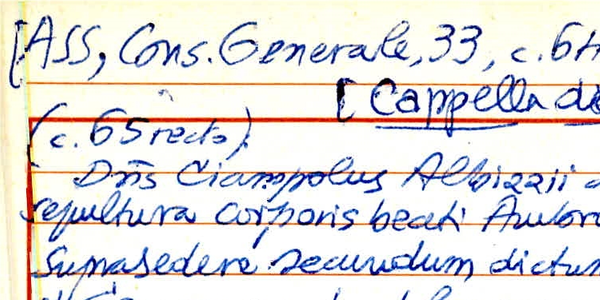 [ASS, Cons. Generale, 33, c. 64
[Cappella de
(c. 65 recto).
Dñs Ciampolus Albizzii
sepultura corporis beati Ambro
Suprasedere secundum dictum